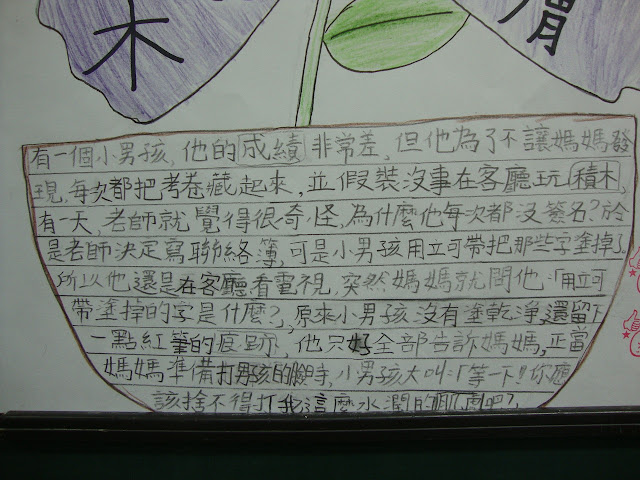 木
有一個小男孩,他的成績非常差,但他為了不讓媽媽發
現,每次都把考卷藏起來,並假裝沒事在客廳玩積木,
有一天,老師就覺得很奇怪,為什麼他每次都沒簽名?於
是老師決定寫聯絡簿,可是小男孩用立可帶把那些字塗掉了
所以他還是在客廳看電視,突然媽媽就問他:「用立可
帶塗掉的字是什麼?」,原來小男孩沒有塗乾淨,還留下
一點紅筆的痕跡,他只好全部告訴媽媽,正當
媽媽準備打男孩的臉時,小男孩大叫:「等一下!!你應
該捨不得打我這麼水潤的肌膚吧?